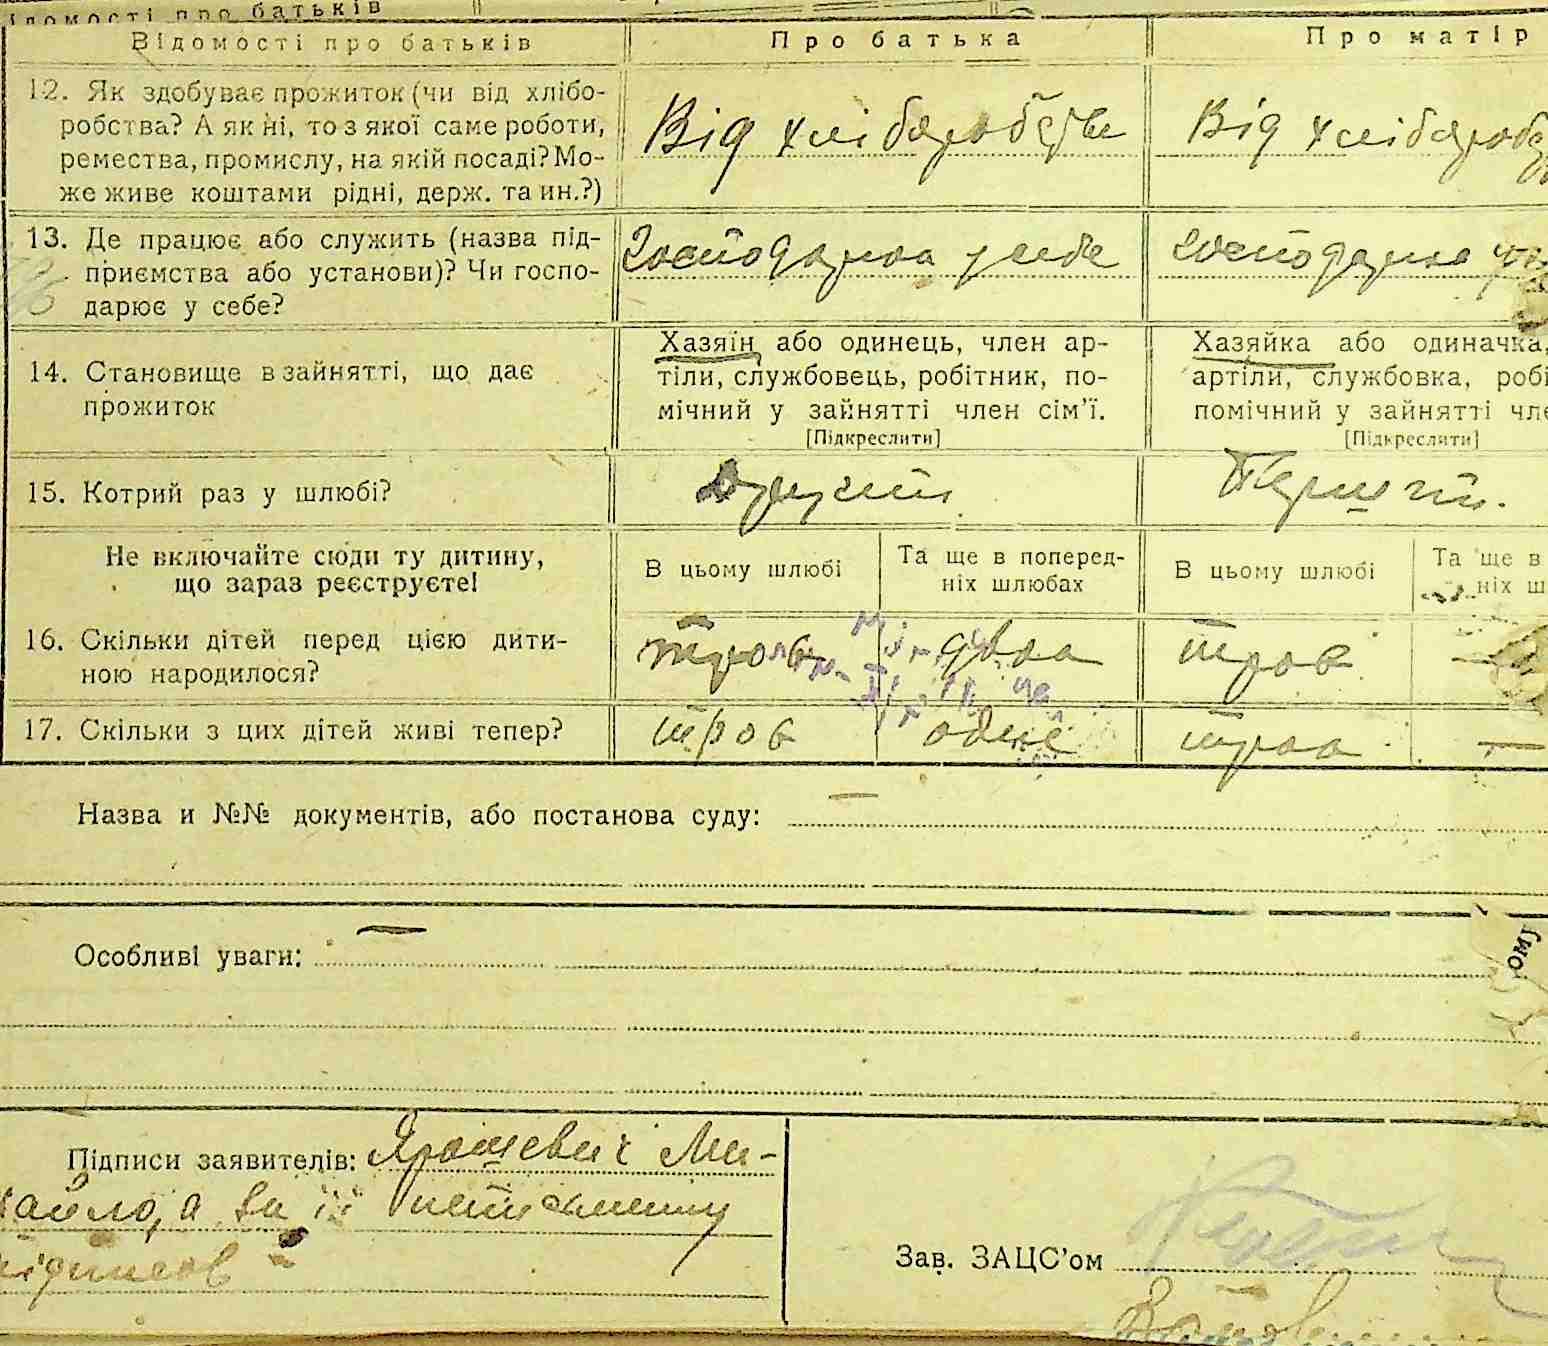 ідомості про батьків
Відомості про батьків Про батька Про матір
12. Як здобуває прожиток (чи від хлібо-
робства? А як ні, то з якої саме роботи,
ремества, промислу, на якій посаді? Мо-
же живе коштами рідні, держ. та ин.?)
Від хліборобства
Від хлібороб
13. Де працює або служить (назва під-
приємства або установи)? Чи госпо-
дарює у себе?
Господарює у себе
господарює у
14. Становище в зайнятті, що дає
прожиток
Хазяїн або одинець, член ар-
тіли, службовець, робітник, по-
мічний у зайнятті член сім’ї.
[Підкреслити]
Хазяйка або одиначка,
артіли, службовка, робі
помічний у зайнятті чле
[Підкреслити]
15. Котрий раз у шлюбі? Другий Перший.
Не включайте сюди ту дитину,
що зараз реєструєте!
В цьому шлюбі
Та ще в поперед-
ніх шлюбах
В цьому шлюбі
Та ще в
ніх ш
16. Скільки дітей перед цією дити-
ною народилося?
троє двоє троє —
17. Скільки з цих дітей живі тепер? троє одне троє —
Назва и №№ документів, або постанова суду: —
Особливі уваги: —
ому
Підписи заявителів: Ярошевич Ми-
хайло, а за її неписьменну
підписав
Зав. ЗАЦС’ом